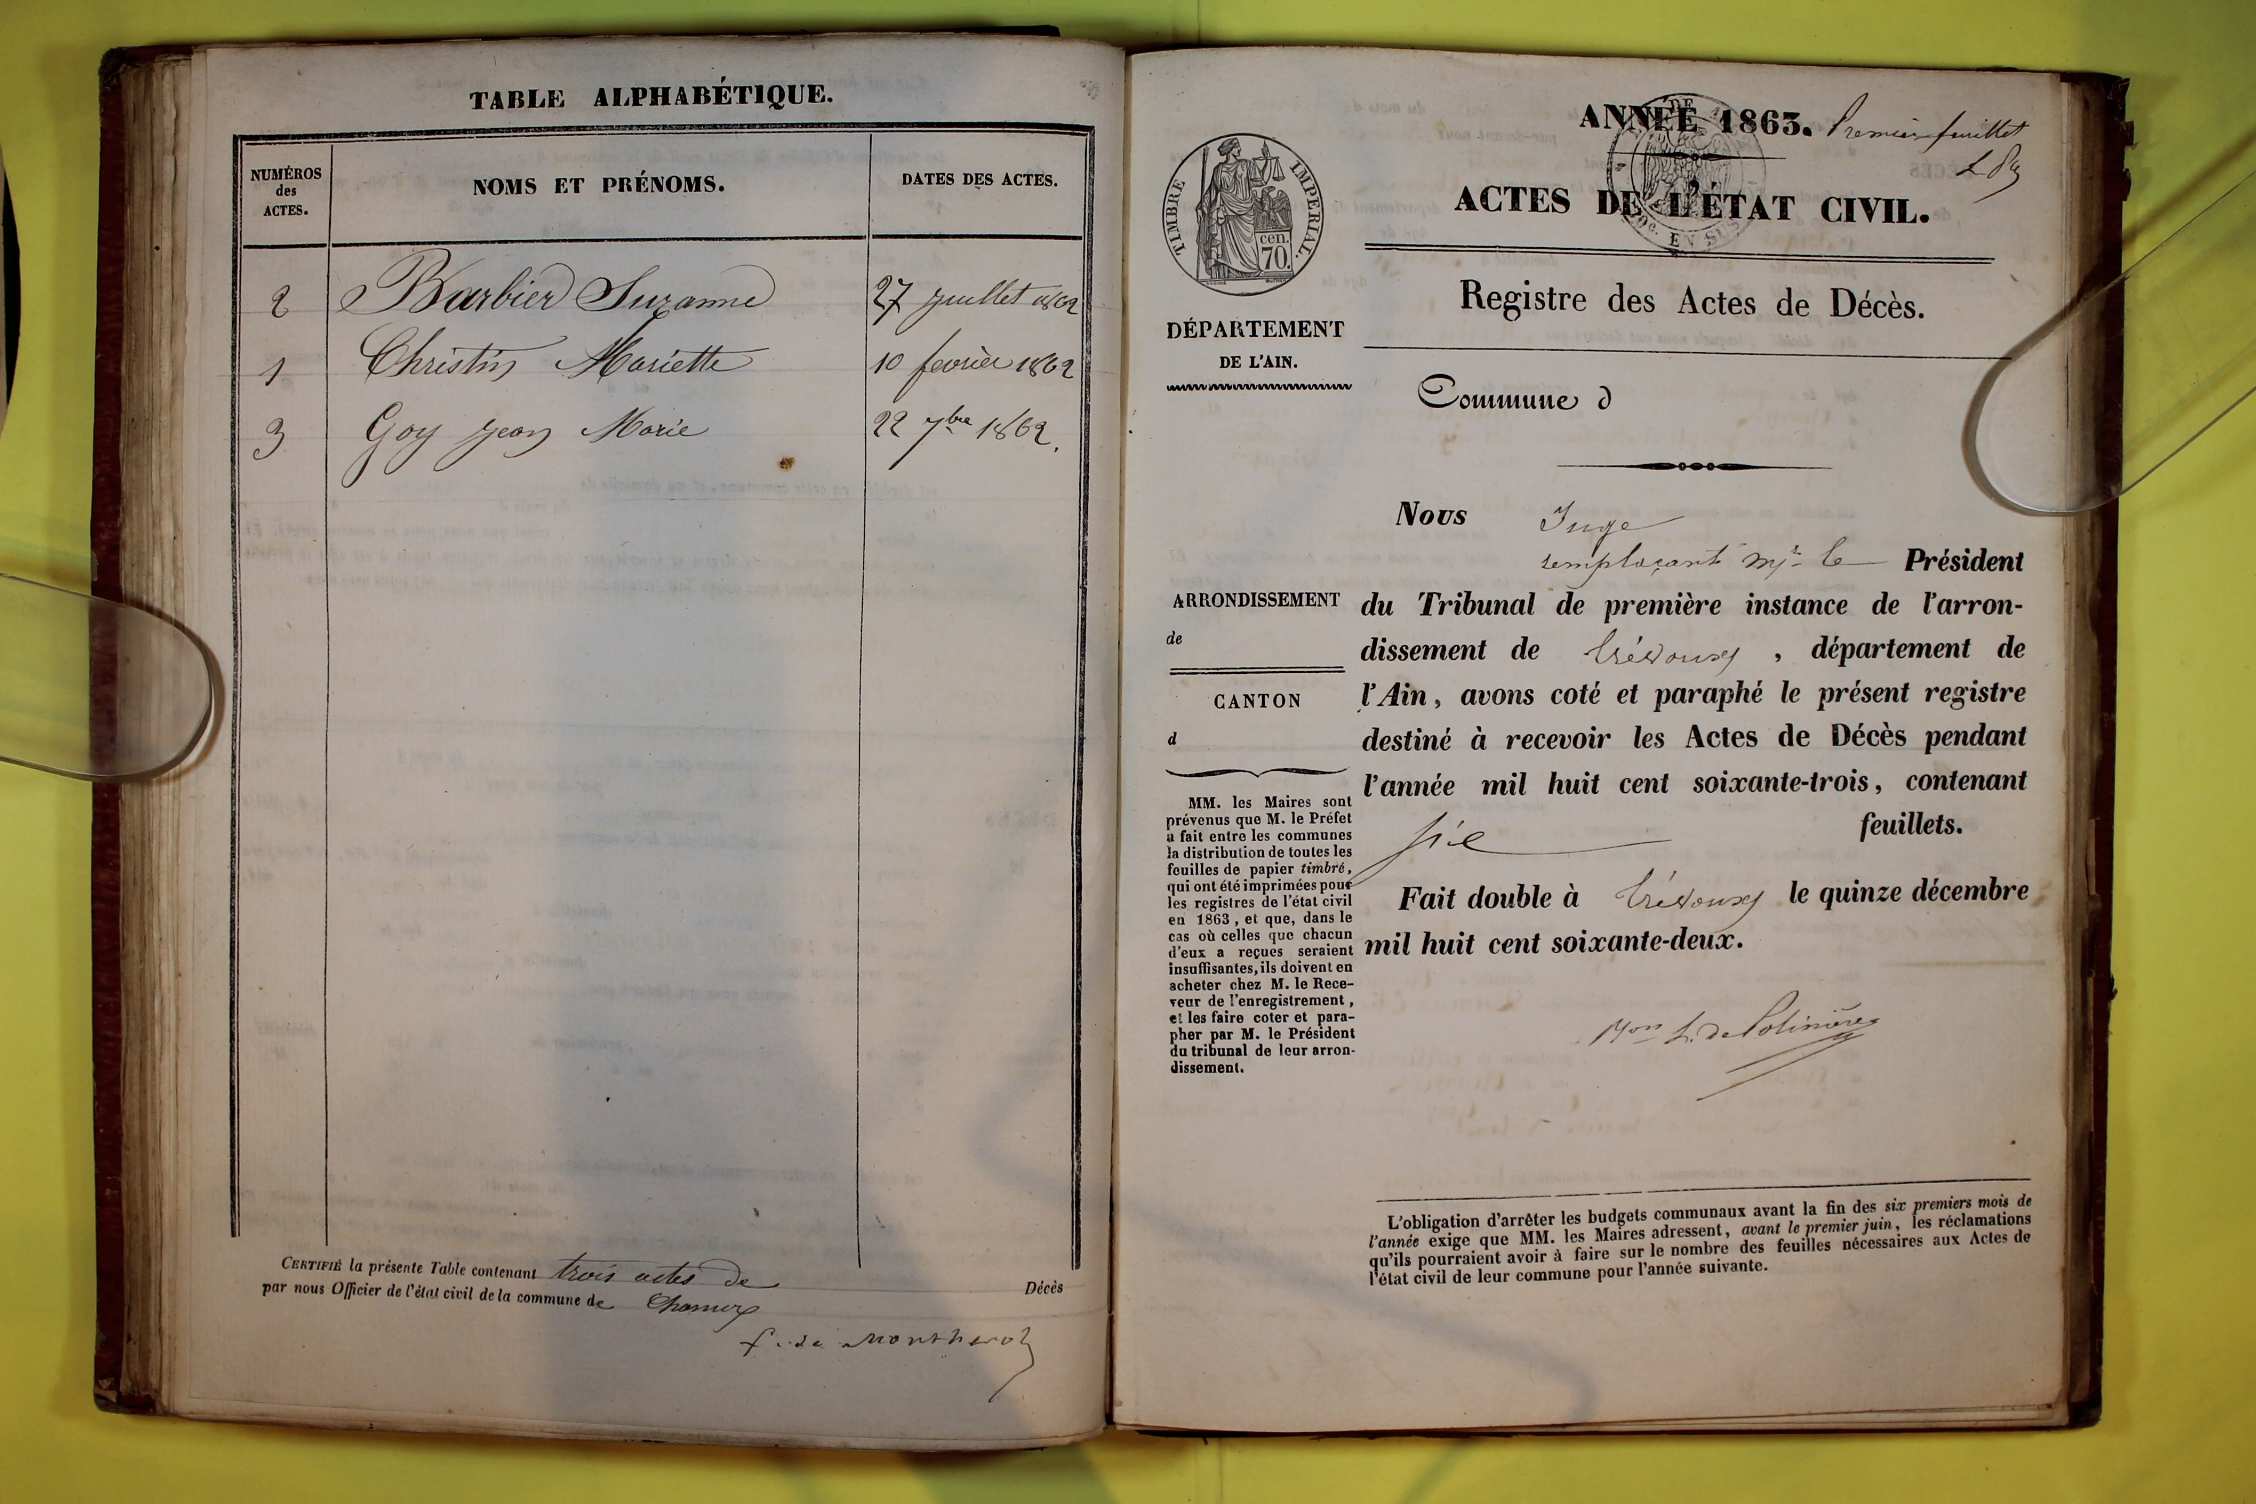 TABLE ALPHABÉTIQUE.
NUMÉROS
des
ACTES.
NOMS ET PRÉNOMS.
DATES DES ACTES.
2 Barbier Suzanne 27 juillet 1862
1 Christin Mariette 10 fevrier 1862
3 Goy jean Marie 22 7bre 1862.
CERTIFIÉ la présente Table contenant trois actes de Décès
par nous Officier de l'état civil de la commune de
ANNÉE 1863. Premier feuillet
ACTES DE L'ÉTAT CIVIL.
TIMBRE IMPERIAL.
cen.
70.
Registre des Actes de Décès.
DÉPARTEMENT
DE L'AIN.
Commune d
ARRONDISSEMENT
de
CANTON
d
MM. les Maires sont
prévenus que M. le Préfet
a fait entre les communes
la distribution de toutes les
feuilles de papier timbré,
qui ont été imprimées pour
les registres de l'état civil
en 1863, et que, dans le
cas où celles que chacun
d'eux a reçues seraient
insuffisantes, ils doivent en
acheter chez M. le Rece-
veur de l'enregistrement,
et les faire coter et para-
pher par M. le Président
du tribunal de leur arron-
dissement.
Nous Juge
remplaçant Mr le Président
du Tribunal de première instance de l'arron-
dissement de Trévoux, département de
l'Ain, avons coté et paraphé le présent registre
destiné à recevoir les Actes de Décès pendant
l'année mil huit cent soixante-trois, contenant
six feuillets.
Fait double à Trévoux le quinze décembre
mil huit cent soixante-deux.
L'obligation d'arrêter les budgets communaux avant la fin des six premiers mois de
l'année exige que MM. les Maires adressent, avant le premier juin, les réclamations
qu'ils pourraient avoir à faire sur le nombre des feuilles nécessaires aux Actes de
l'état civil de leur commune pour l'année suivante.